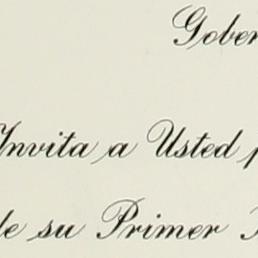 Gober
Invita a Usted p
de su Primer